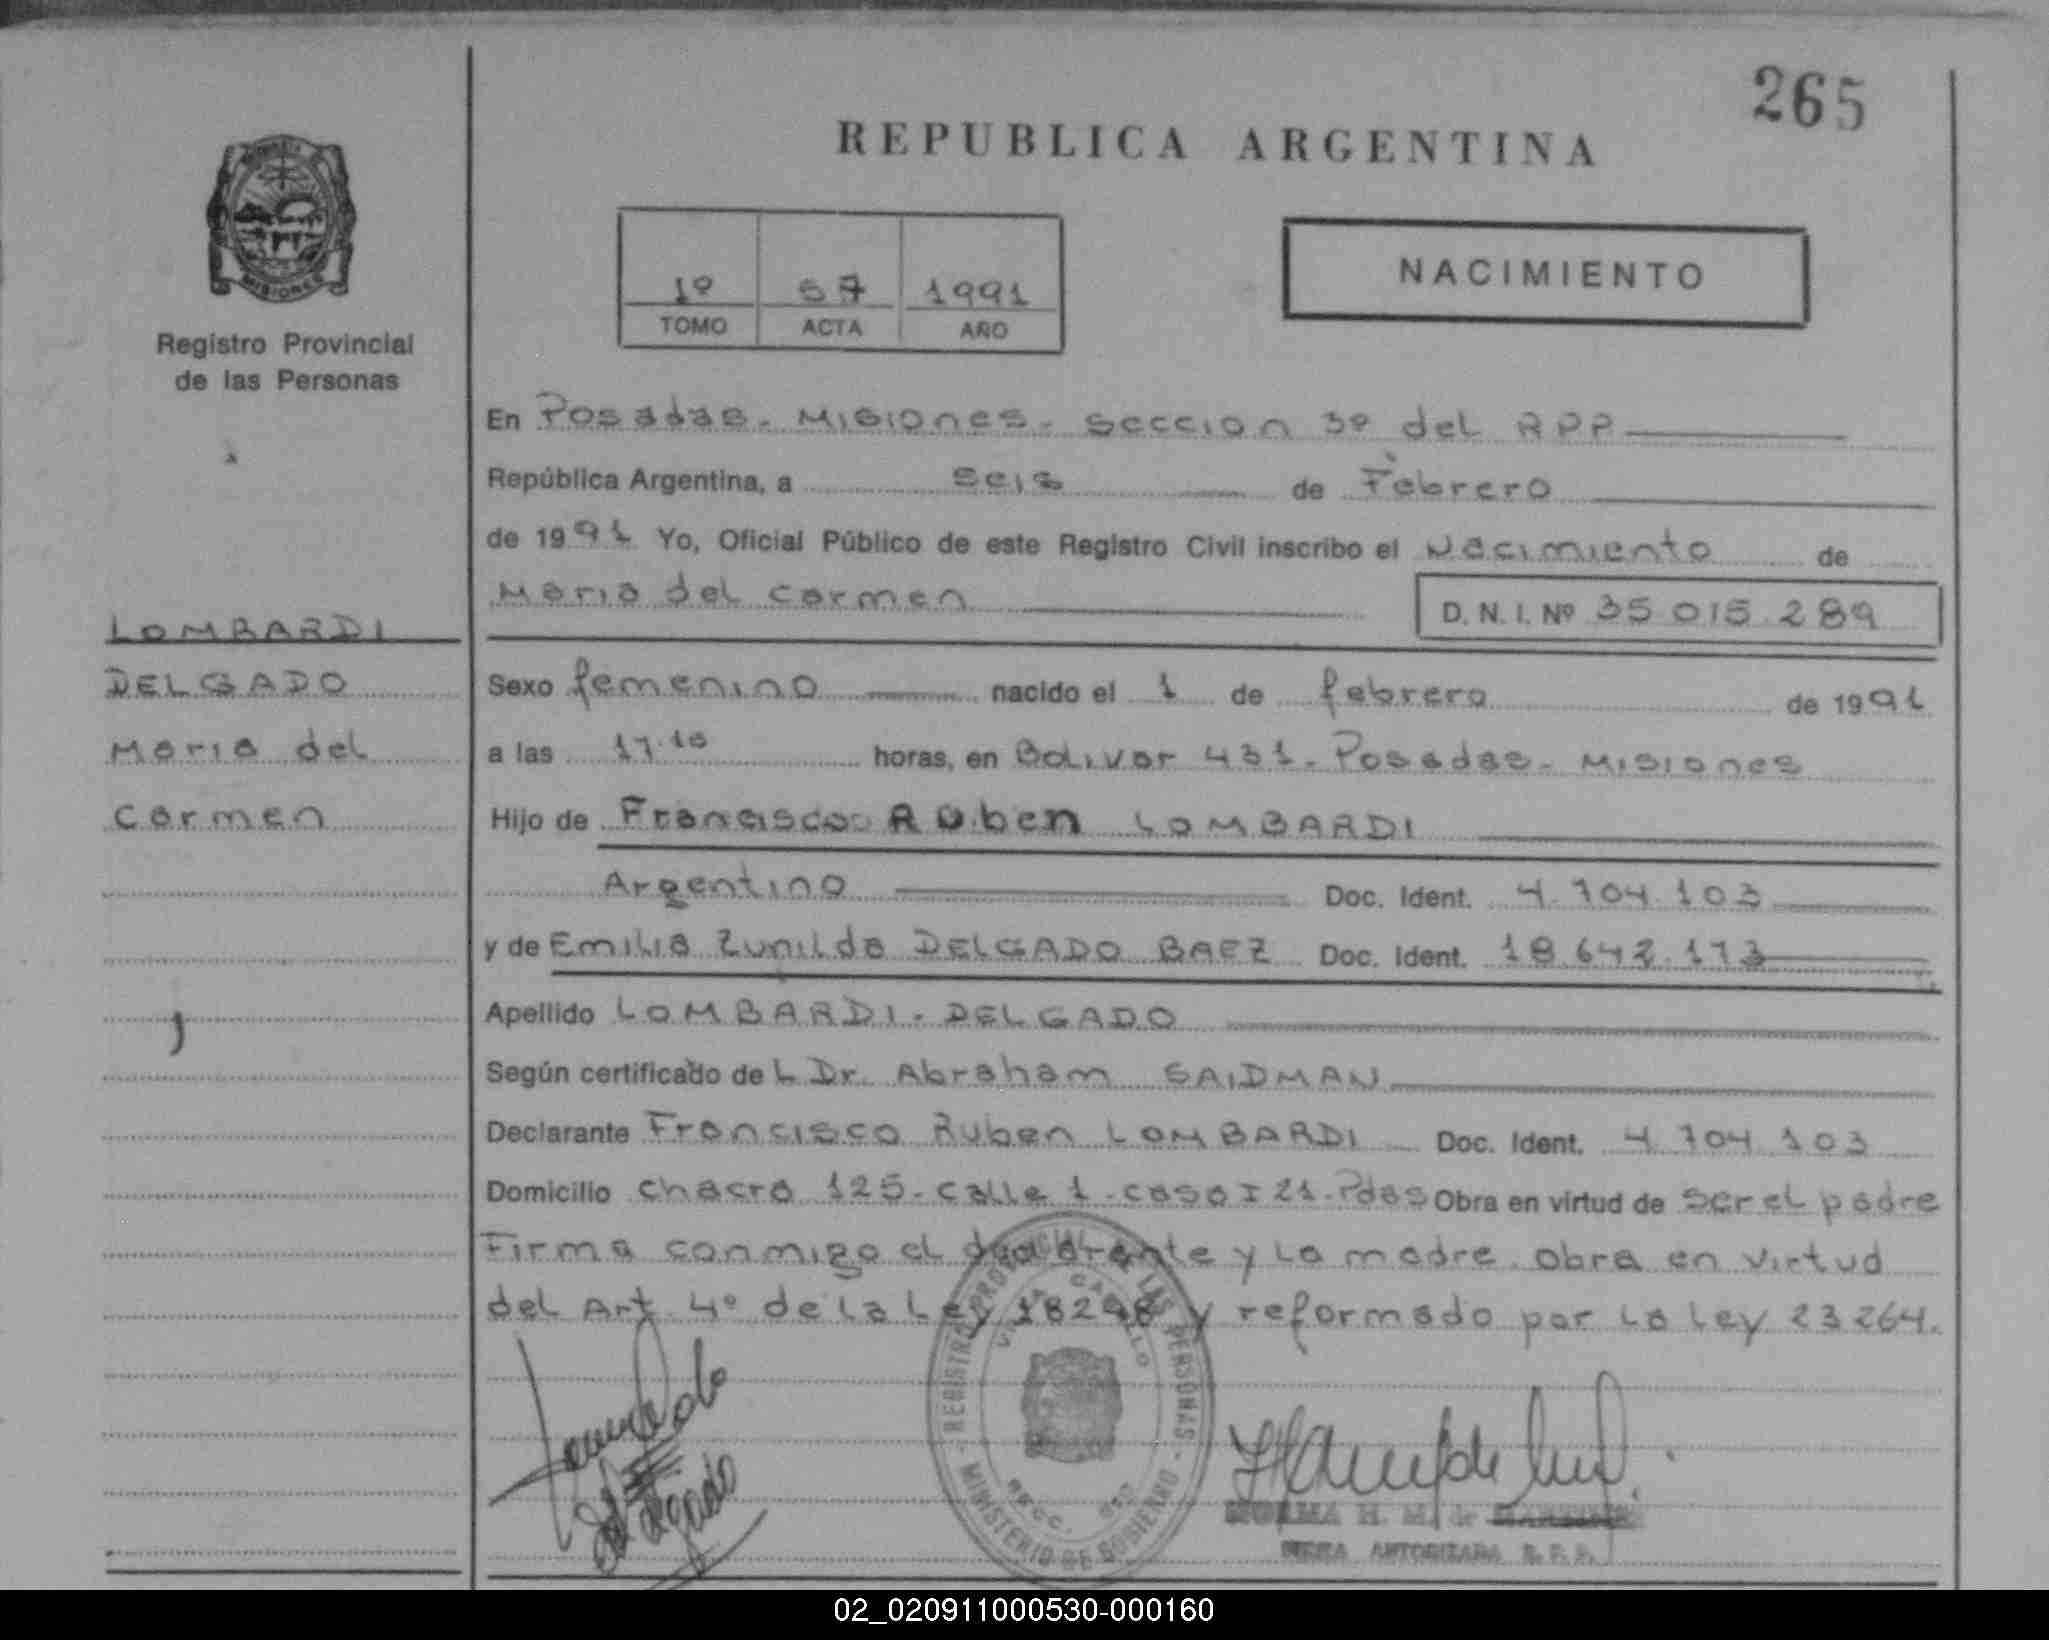 265
REPUBLICA ARGENTINA
MISIONES
Registro Provincial
de las Personas
1º 57 1991
TOMO ACTA AÑO
NACIMIENTO
En Posadas - Misiones - Seccion 3º del RPP
República Argentina, a seis de Febrero
de 1991 Yo, Oficial Público de este Registro Civil inscribo el Nacimiento de
Maria del Carmen D. N. I. Nº 35 015 289
LOMBARDI
DELGADO
Maria del
Carmen
Sexo femenino nacido el 1 de febrero de 1991
a las 17.10 horas, en Bolivar 431 - Posadas - Misiones
Hijo de Francisco Ruben LOMBARDI
Argentino Doc. Ident. 4.704.103
y de Emilia Zunilda DELGADO BAEZ Doc. Ident. 18.642.173
Apellido LOMBARDI - DELGADO
Según certificado de L Dr. Abraham SAIDMAN
Declarante Francisco Ruben LOMBARDI Doc. Ident. 4.704.103
Domicilio Chacra 125 - Calle 1 - casa I 21 - Pdas Obra en virtud de ser el padre
Firma conmigo el declarante y la madre. Obra en virtud
del Art. 4º de la Ley 18248 y reformado por la Ley 23264.
REGISTRO PROVINCIAL DE LAS PERSONAS
MINISTERIO DE GOBIERNO
Delgado
NORMA H. M. de
FIRMA AUTORIZADA R. P. P.
02_020911000530-000160